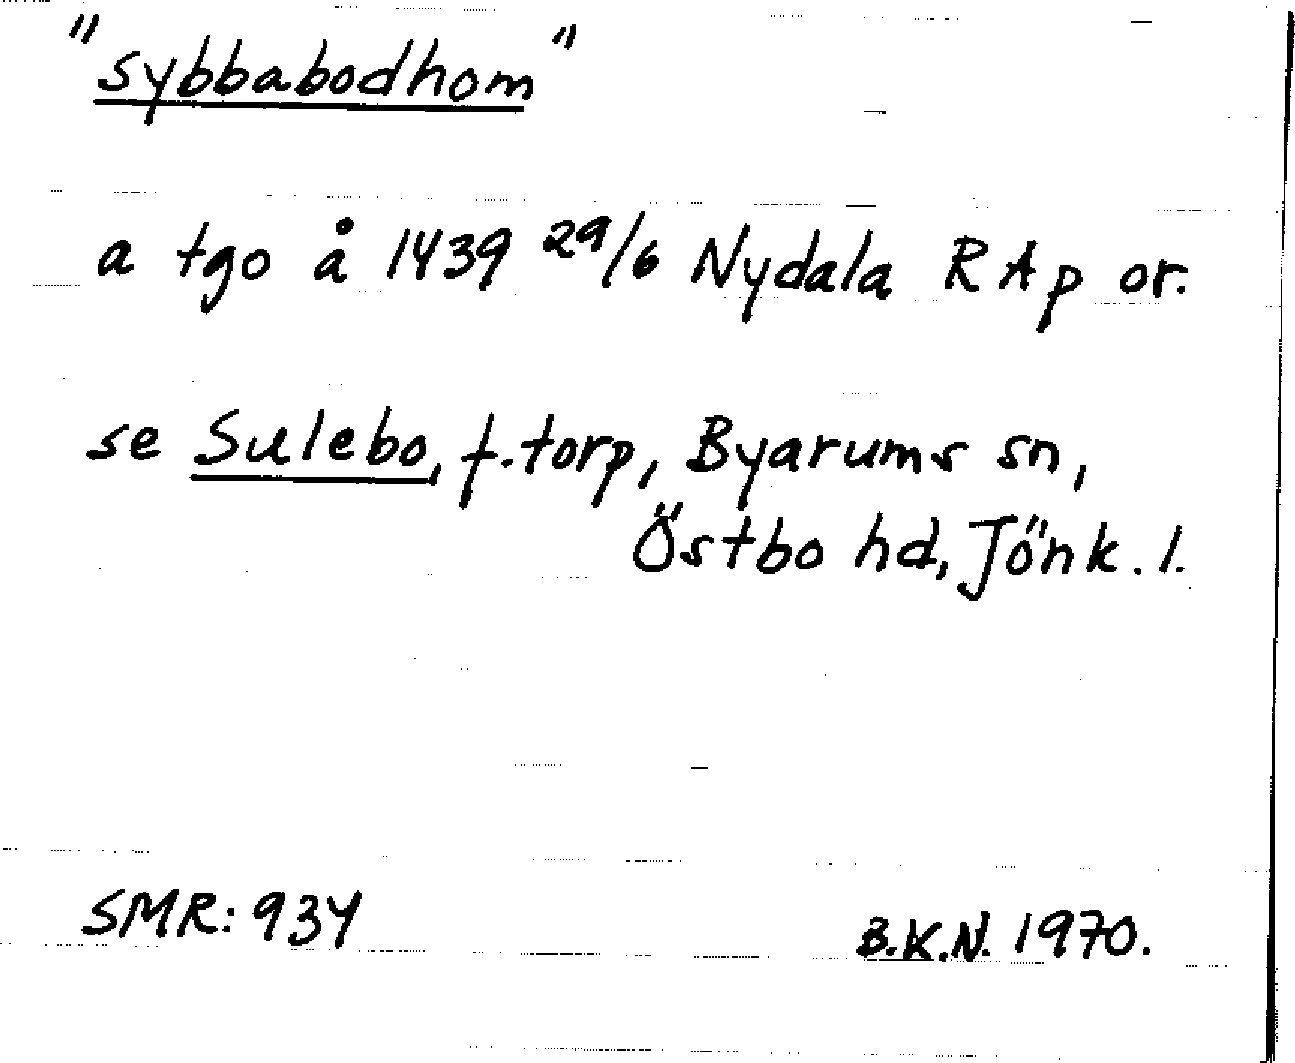 "sybbabodhom"
a tgo å 1439 29/6 Nydala RAp or.
se Sulebo, f.torp, Byarums sn,
Östbo hd, Jönk. l.
SMR: 934
B.K.N. 1970.